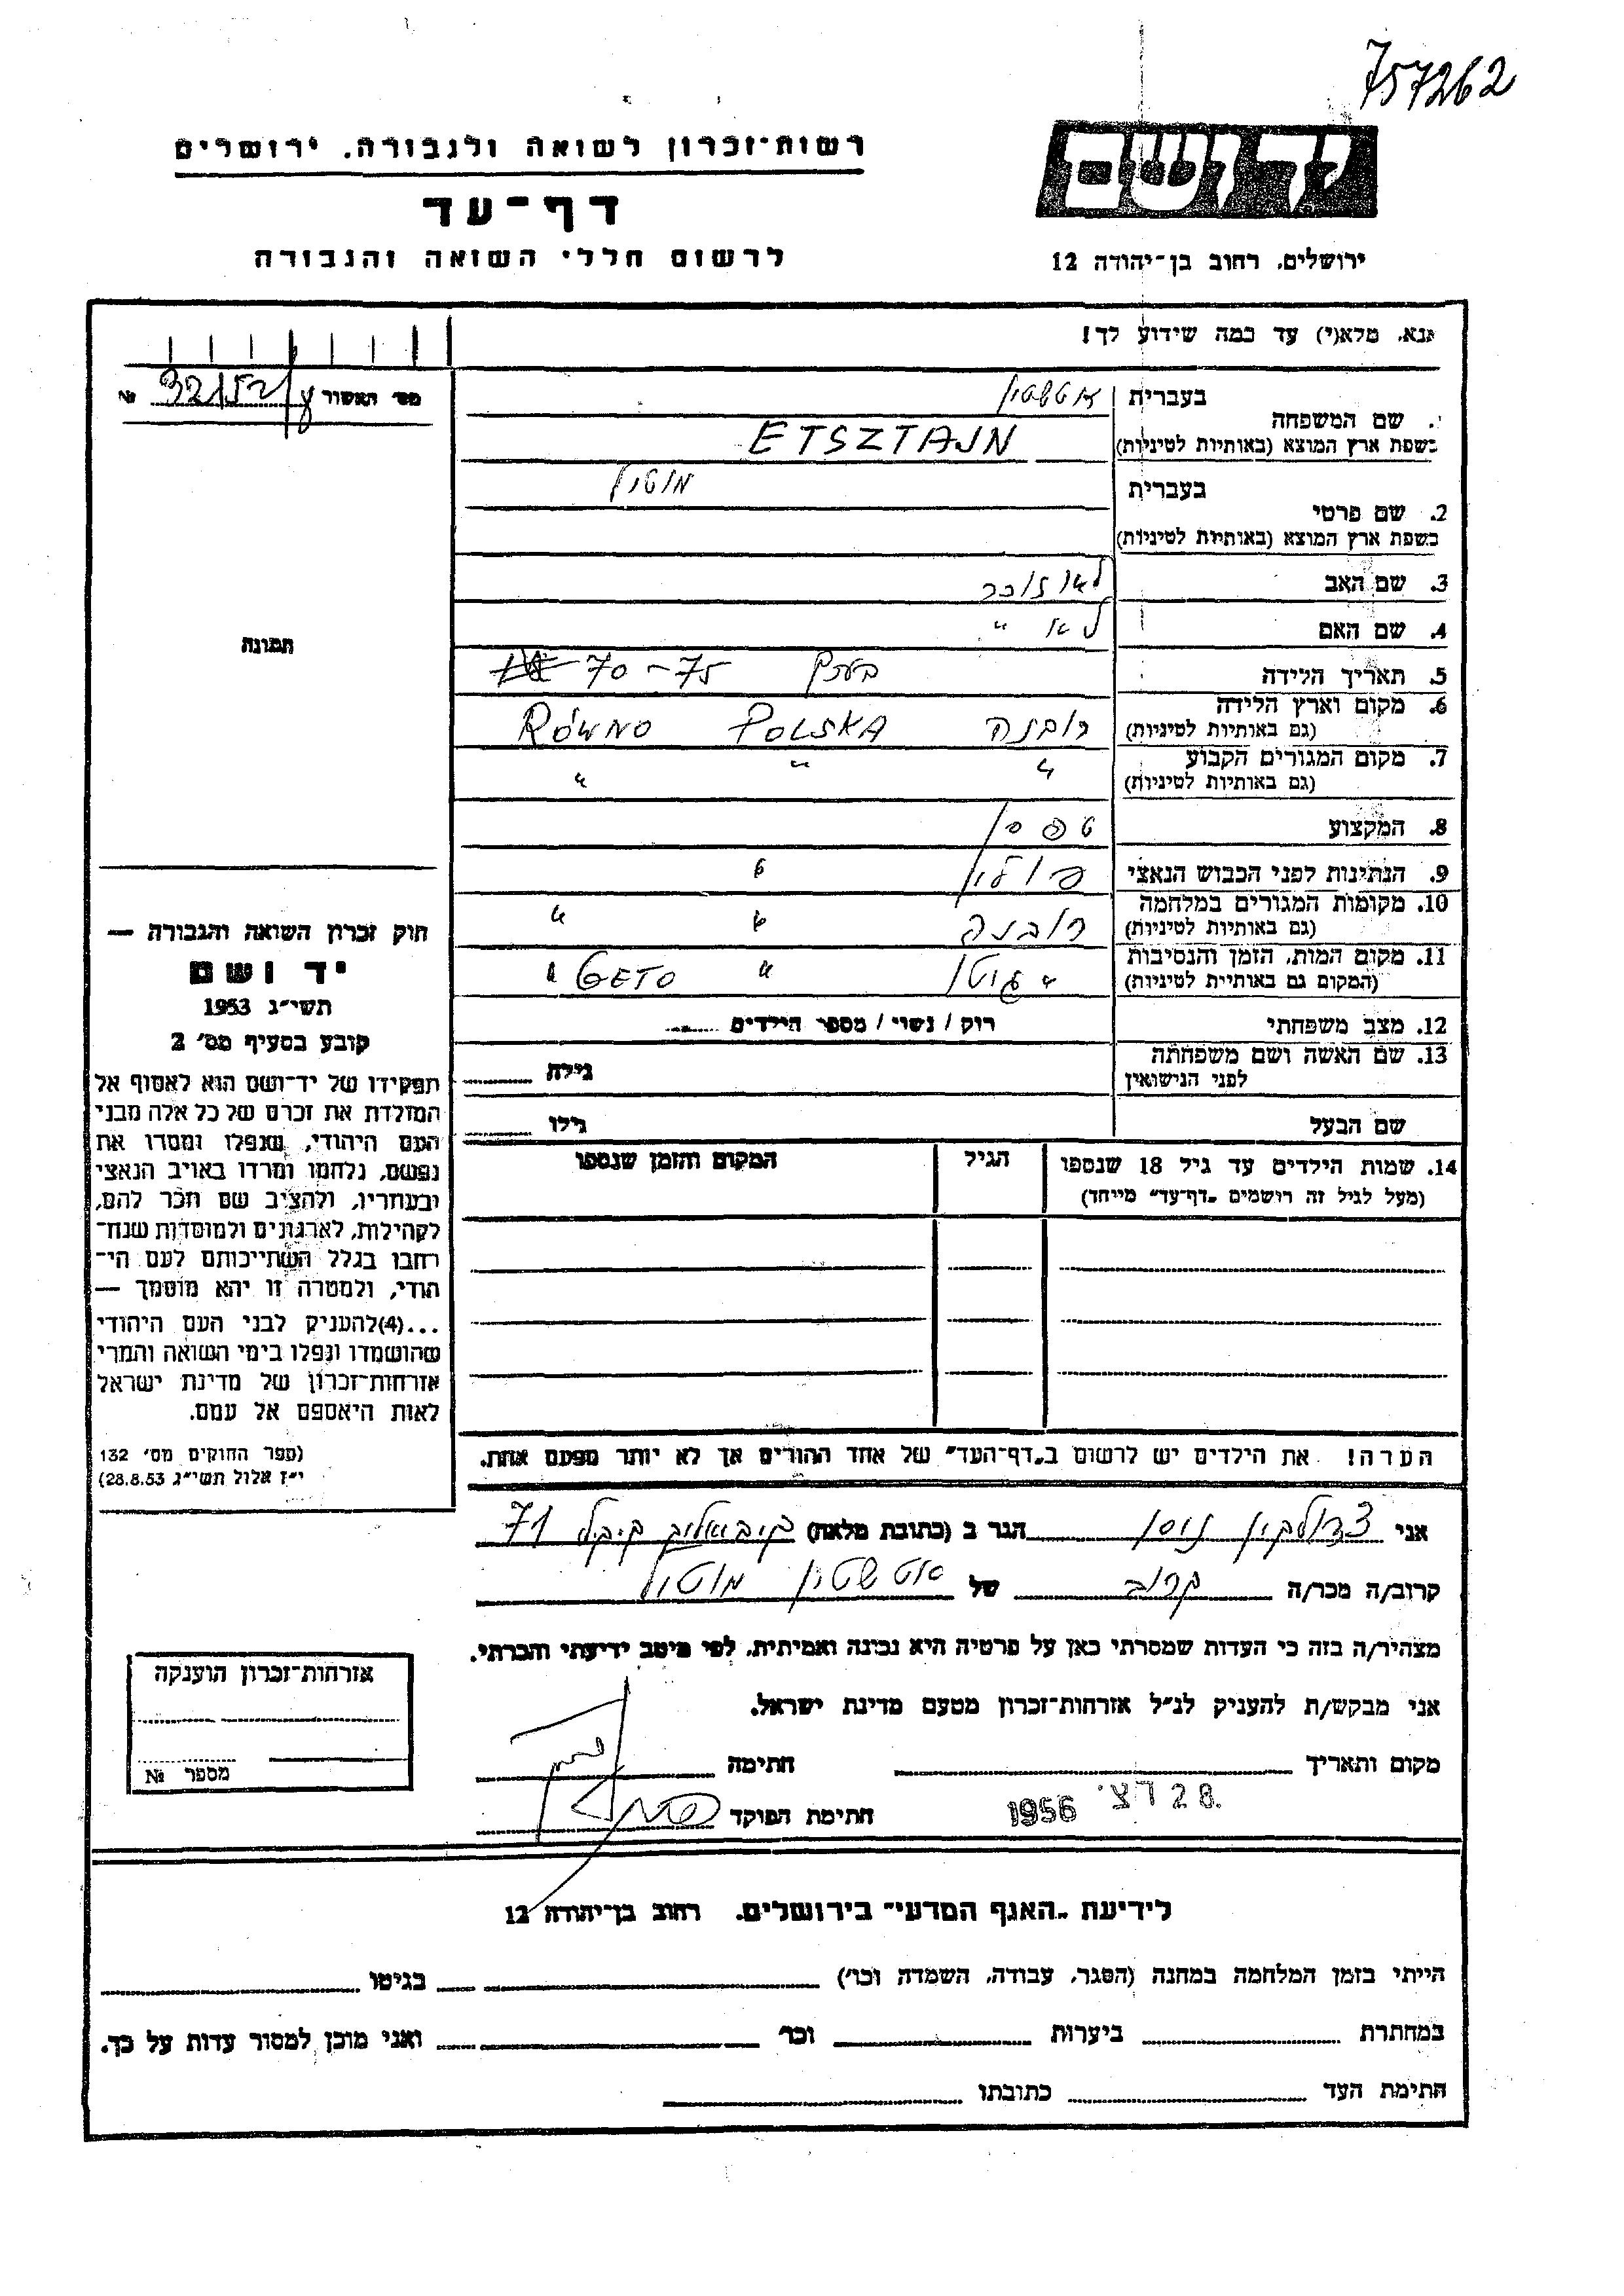 757262
רשות־זכרון לשואה ולגבורה. ירושלים
דף־עד
לרשום חללי השואה והגבורה
יד ושם
ירושלים. רחוב בן־יהודה 12
אנא. מלא(י) עד כמה שידוע לך!
מס׳ האשור 32152 №
שם המשפחה
בעברית
בשפת ארץ המוצא (באותיות לטיניות) ETSZTAJN
2. שם פרטי
בעברית מוטיל
בשפת ארץ המוצא (באותיות לטיניות)
3. שם האב לא זוכר
4. שם האם לא "
5. תאריך הלידה בערך 70-75
6. מקום וארץ הלידה רובנה POLSKA RÓWNO
(גם באותיות לטיניות)
7. מקום המגורים הקבוע " " "
(גם באותיות לטיניות)
8. המקצוע
9. הנתינות לפני הכבוש הנאצי פולין
10. מקומות המגורים במלחמה רובנה " "
(גם באותיות לטיניות)
11. מקום המות. הזמן והנסיבות " גיטו " GETO "
(המקום גם באותיות לטיניות)
12. מצב משפחתי רוק / נשוי / מספר הילדים
13. שם האשה ושם משפחתה
לפני הנישואין גילה
שם הבעל גילו
14. שמות הילדים עד גיל 18 שנספו
(מעל לגיל זה רושמים „דף־עד” מייחד)
הגיל
המקום והזמן שנספו
הערה! את הילדים יש לרשום ב„דף־העד” של אחד ההורים אך לא יותר מפעם אחת.
תמונה
חוק זכרון השואה והגבורה —
יד ושם
תשי״ג 1953
קובע בסעיף מס׳ 2
תפקידו של יד־ושם הוא לאסוף אל
המולדת את זכרם של כל אלה מבני
העם היהודי, שנפלו ומסרו את
נפשם, נלחמו ומרדו באויב הנאצי
ובעוזריו, ולהציב שם וזכר להם,
לקהילות, לארגונים ולמוסדות שנח־
רבו בגלל השתייכותם לעם הי־
הודי, ולמטרה זו יהא מוסמך —
...(4)להעניק לבני העם היהודי
שהושמדו ונפלו בימי השואה והמרי
אזרחות־זכרון של מדינת ישראל
לאות היאספם אל עמם.
(ספר החוקים מס׳ 132
י״ז אלול תשי״ג 28.8.53)
אני הגר ב (כתובת מלאה) 71
קרוב/ה מכר/ה קרוב של מוטיל
מצהיר/ה בזה כי העדות שמסרתי כאן על פרטיה היא נכונה ואמיתית. לפי מיטב ידיעתי והכרתי.
אני מבקש/ת להעניק לנ״ל אזרחות־זכרון מטעם מדינת ישראל.
מקום ותאריך חתימה
28 דצ׳ 1956 חתימת הפוקד
אזרחות־זכרון הוענקה
מספר №
לידיעת „האגף המדעי” בירושלים. רחוב בן־יהודה 12
הייתי בזמן המלחמה במחנה (הסגר, עבודה, השמדה וכו׳) בגיטו
במחתרת ביערות וכו׳ ואני מוכן למסור עדות על כך.
חתימת העד כתובתו